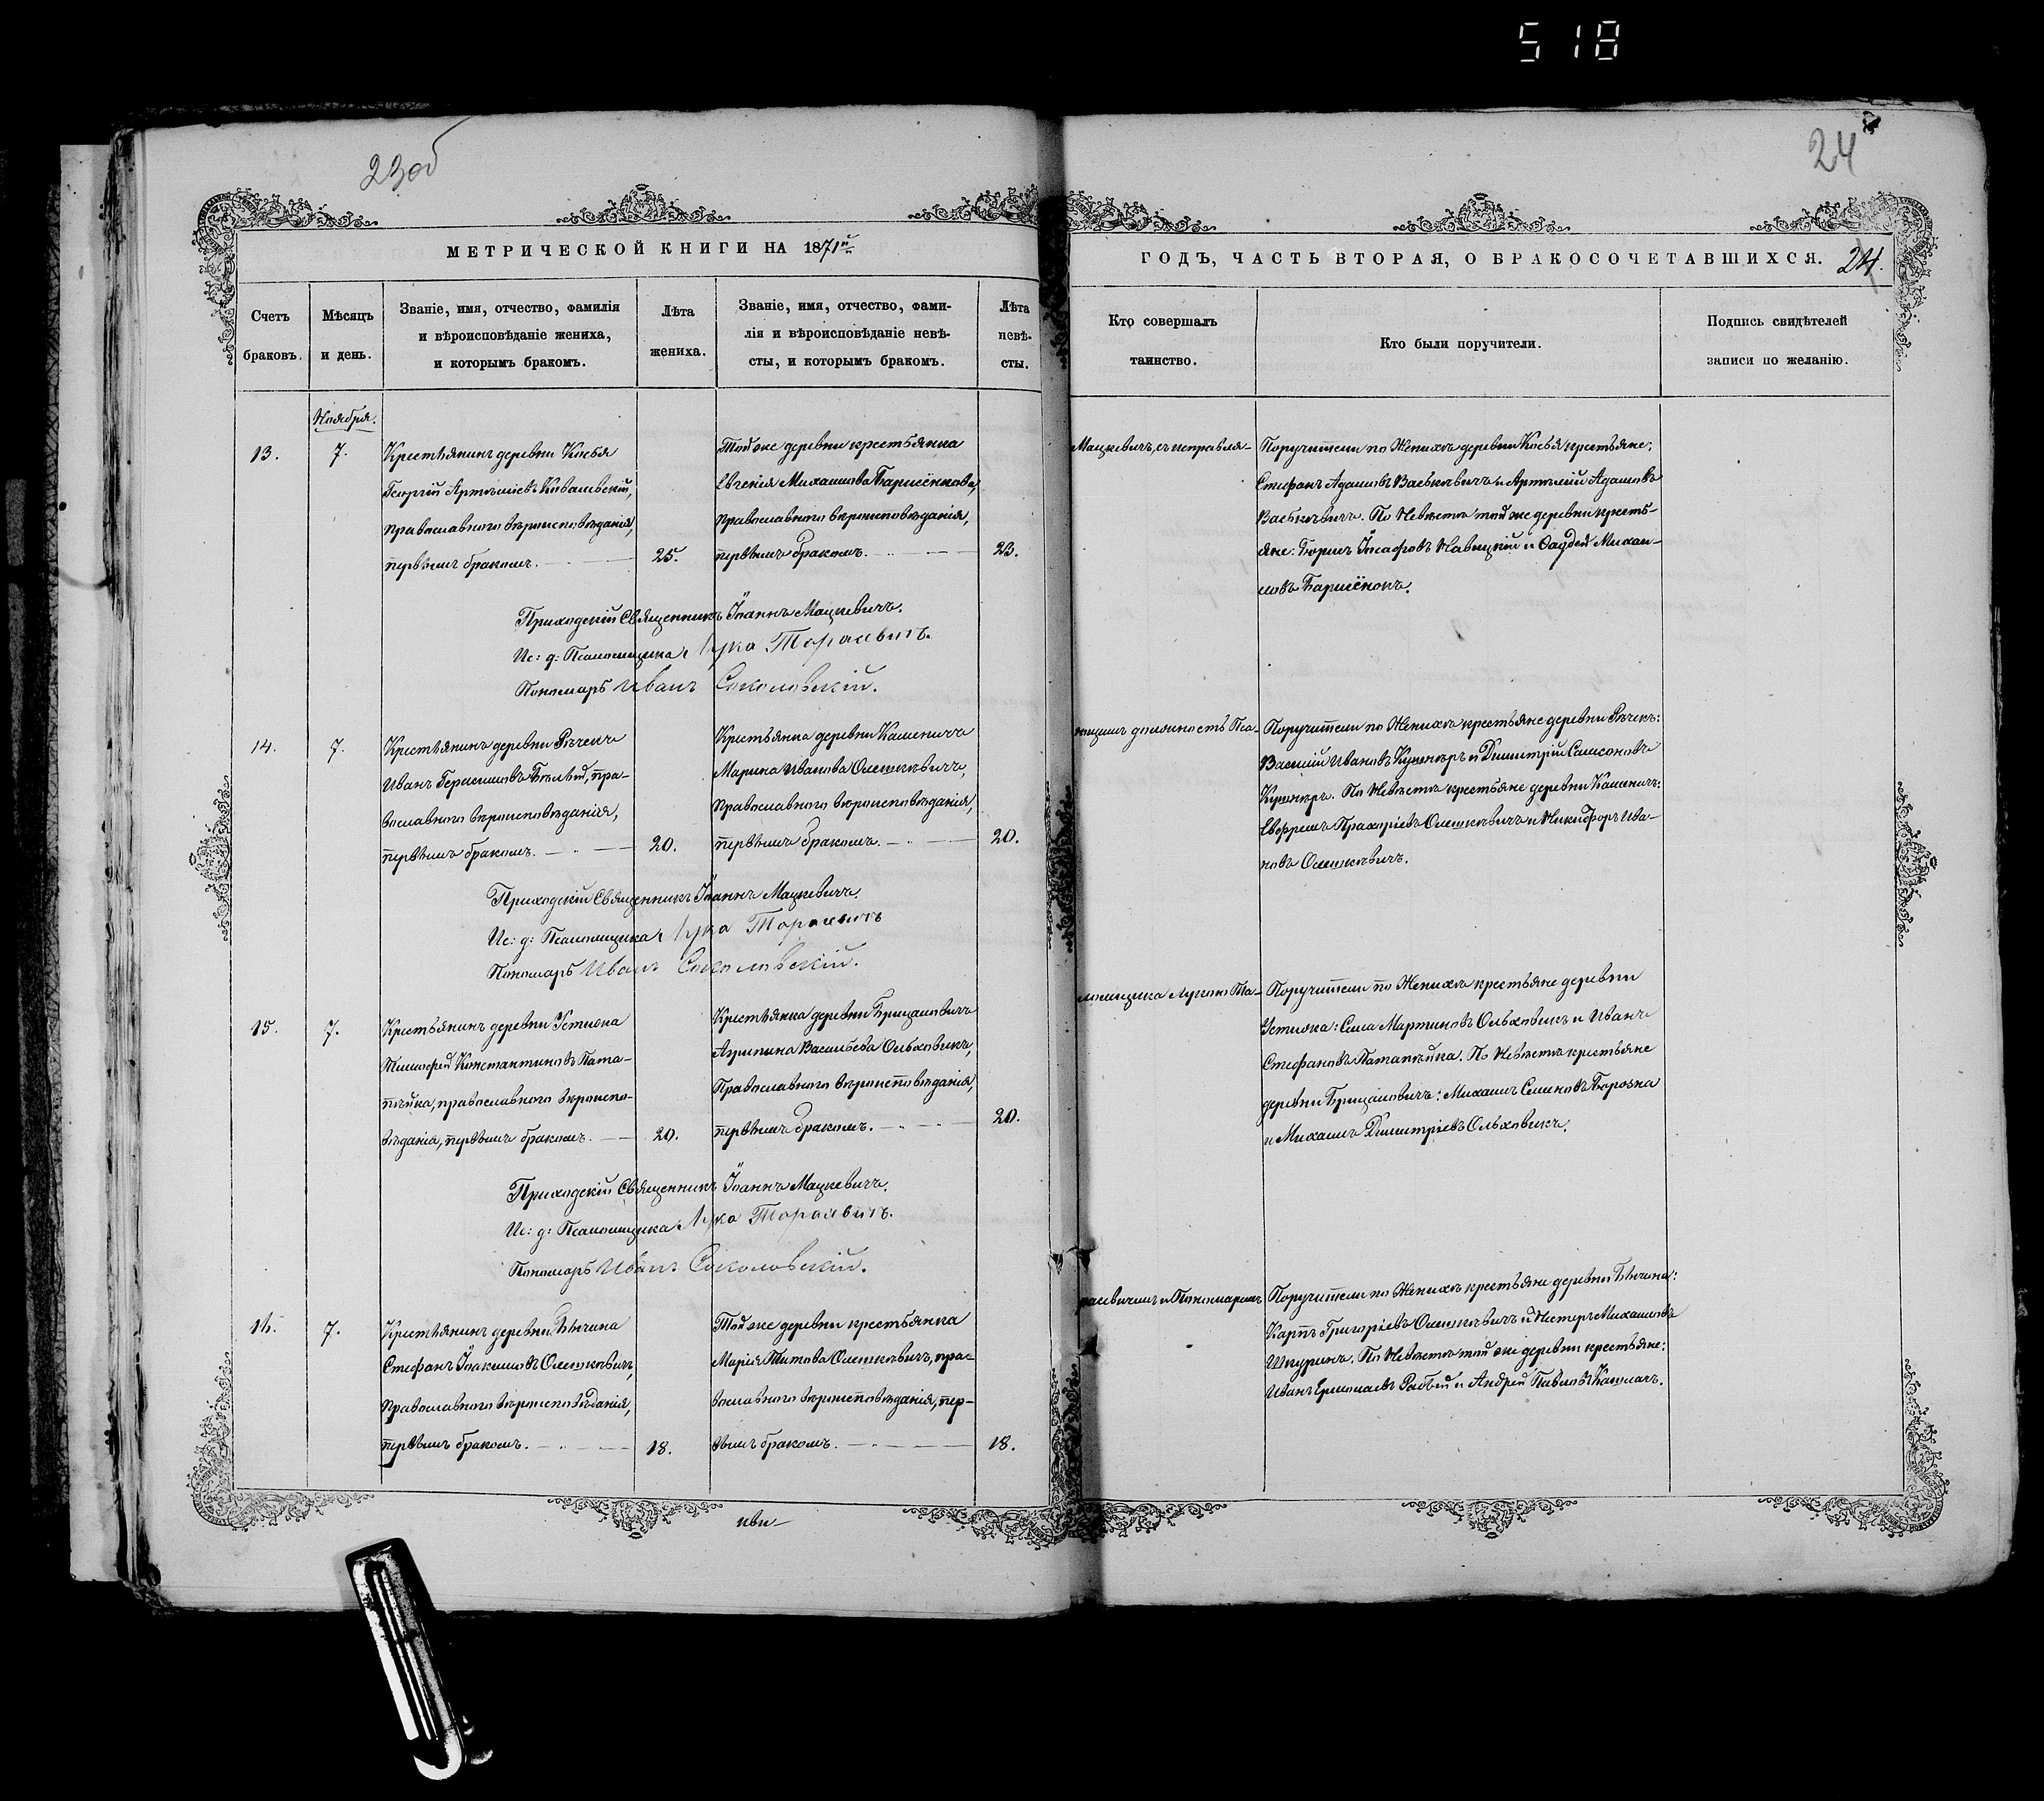 518
23об
24
МЕТРИЧЕСКОЙ КНИГИ НА 1871й
Счетъ браковъ.
Мѣсяцъ и день.
Званіе, имя, отчество, фамилія и вѣроисповѣданіе жениха, и которымъ бракомъ.
Лѣта жениха.
Званіе, имя, отчество, фамилія и вѣроисповѣданіе невѣсты, и которымъ бракомъ.
Лѣта невѣсты.
Ноября.
13.
7.
Крестьянинъ деревни Косья
Георгій Артеміевъ
православнаго вѣроисповѣданія,
первымъ бракомъ.
25.
Той же деревни крестьянка
Евгенія Михаилова Барисёнкова,
православнаго вѣроисповѣданія,
первымъ бракомъ.
23.
Приходскій Священникъ Іоаннъ Мацкевичъ.
Ис: д: Псаломщика Лука Тарасевичъ.
Пономарь Иванъ Соколовскій.
14.
7.
Крестьянинъ деревни Рѣчекъ
Иванъ Герасимовъ Бѣлый, пра-
вославнаго вѣроисповѣданія,
первымъ бракомъ.
20.
Крестьянка деревни Каменичъ
Марина Иванова Олешкевичъ,
православнаго вѣроисповѣданія,
первымъ бракомъ.
20.
Приходскій Священникъ Іоаннъ Мацкевичъ.
Ис: д: Псаломщика Лука Тарасевичъ
Пономарь Иванъ Соколовскій.
15.
7.
Крестьянинъ деревни Устиона
Тимофей Константиновъ Пата-
пѣйка, православнаго вѣроиспо-
вѣданія, первымъ бракомъ.
20.
Крестьянка деревни Брицаловичъ
Агрипина Васильева Ольховикъ,
Православнаго вѣроисповѣданія,
первымъ бракомъ.
20.
Приходскій Священникъ Іоаннъ Мацкевичъ.
Ис: д: Псаломщика Лука Тарасевичъ.
Пономарь Иванъ Соколовскій.
16.
7.
Крестьянинъ деревни
Стефанъ Іоакимовъ Олешкевичъ,
Православнаго вѣроисповѣданія,
первымъ бракомъ.
18.
Той же деревни крестьянка
Марія Титова Олешкевичъ, пра-
вославнаго вѣроисповѣданія, пер-
вымъ бракомъ.
18.
ГОДЪ, ЧАСТЬ ВТОРАЯ, О БРАКОСОЧЕТАВШИХСЯ. 24.
Кто совершалъ таинство.
Кто были поручители.
Подпись свидѣтелей записи по желанію.
Мацкевичъ, съ исправля-
ющимъ должность Пса-
ломщика Лукою Та-
расевичемъ и Пономаремъ
Поручители по Женихѣ деревни Косья крестьяне:
Стефанъ Адамовъ Васькевичъ и Артемій Адамовъ
Васькевичъ. По Невѣстѣ той же деревни кресть-
яне: Борисъ Іосифовъ и Фаддей Михаи-
ловъ Барисёнокъ.
Поручители по Женихѣ крестьяне деревни Рѣчекъ:
Василій Ивановъ Кушнеръ и Димитрій Самсоновъ
Кушнеръ. По Невѣстѣ крестьяне деревни Каменичъ:
Ефремъ Прахоріевъ Олешкевичъ и Никифоръ Ива-
новъ Олешкевичъ.
Поручители по Женихѣ крестьяне деревни
Устиона: Сила Мартиновъ Ольховикъ и Иванъ
Стефановъ Патапѣйка. По Невѣстѣ крестьяне
деревни Брицаловичъ: Михаилъ Семеновъ Борозна
и Михаилъ Димитріевъ Ольховикъ.
Поручители по Женихѣ крестьяне деревни
Карпъ Григоріевъ Олешкевичъ и Нестеръ Михаиловъ
Шкуринъ. По Невѣстѣ той же деревни крестьяне:
Иванъ Ермолаевъ Рабый и Андрей Павловъ